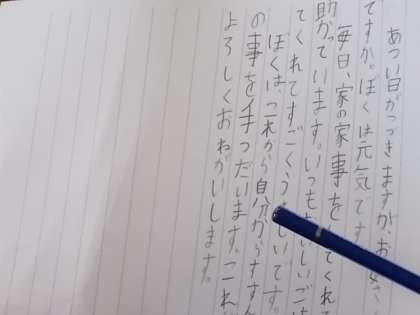 あつい日がつづきますが、お
ですか。ぼくは元気です
毎日、家の家事をしてくれ
助かっています。いつもおいしいご
てくれてすごくうれしいです。
ぼくは、これから自分からすすん
の事を手つだいます。これ
よろしくおねがいします。